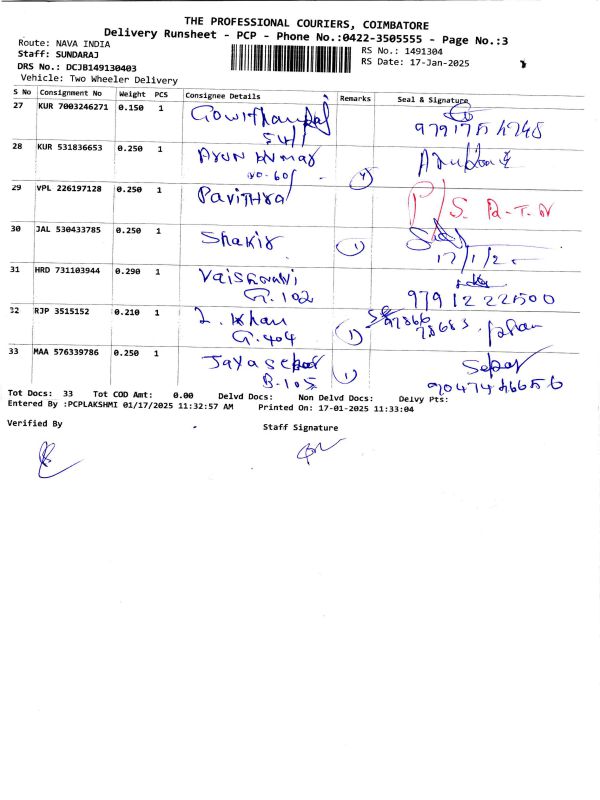 THE PROFESSIONAL COURIERS, COIMBATORE
Delivery Runsheet - PCP - Phone No.:0422-3505555 - Page No.:3
Route: NAVA INDIA
RS No.: 1491304
Staff: SUNDARAJ
RS Date: 17-Jan-2025
DRS No.: DCJB149130403
Vehicle: Two Wheeler Delivery
S No Consignment No Weight PCS Consignee Details Remarks Seal & Signature
27 KUR 7003246271 0.150 1
28 KUR 531836653 0.250 1 Arun kumar
no. 601
29 VPL 226197128 0.250 1 Pavithra P/S.
30 JAL 530433785 0.250 1 Shakir 1
17/1/2
31 HRD 731103944 0.290 1 Vaishnavi
G. 102
32 RJP 3515152 0.210 1 Khan 1
G. 404
33 MAA 576339786 0.250 1 1
B-105
Tot Docs: 33 Tot COD Amt: 0.00 Delvd Docs: Non Delvd Docs: Delvy Pts:
Entered By :PCPLAKSHMI 01/17/2025 11:32:57 AM Printed On: 17-01-2025 11:33:04
Verified By
Staff Signature